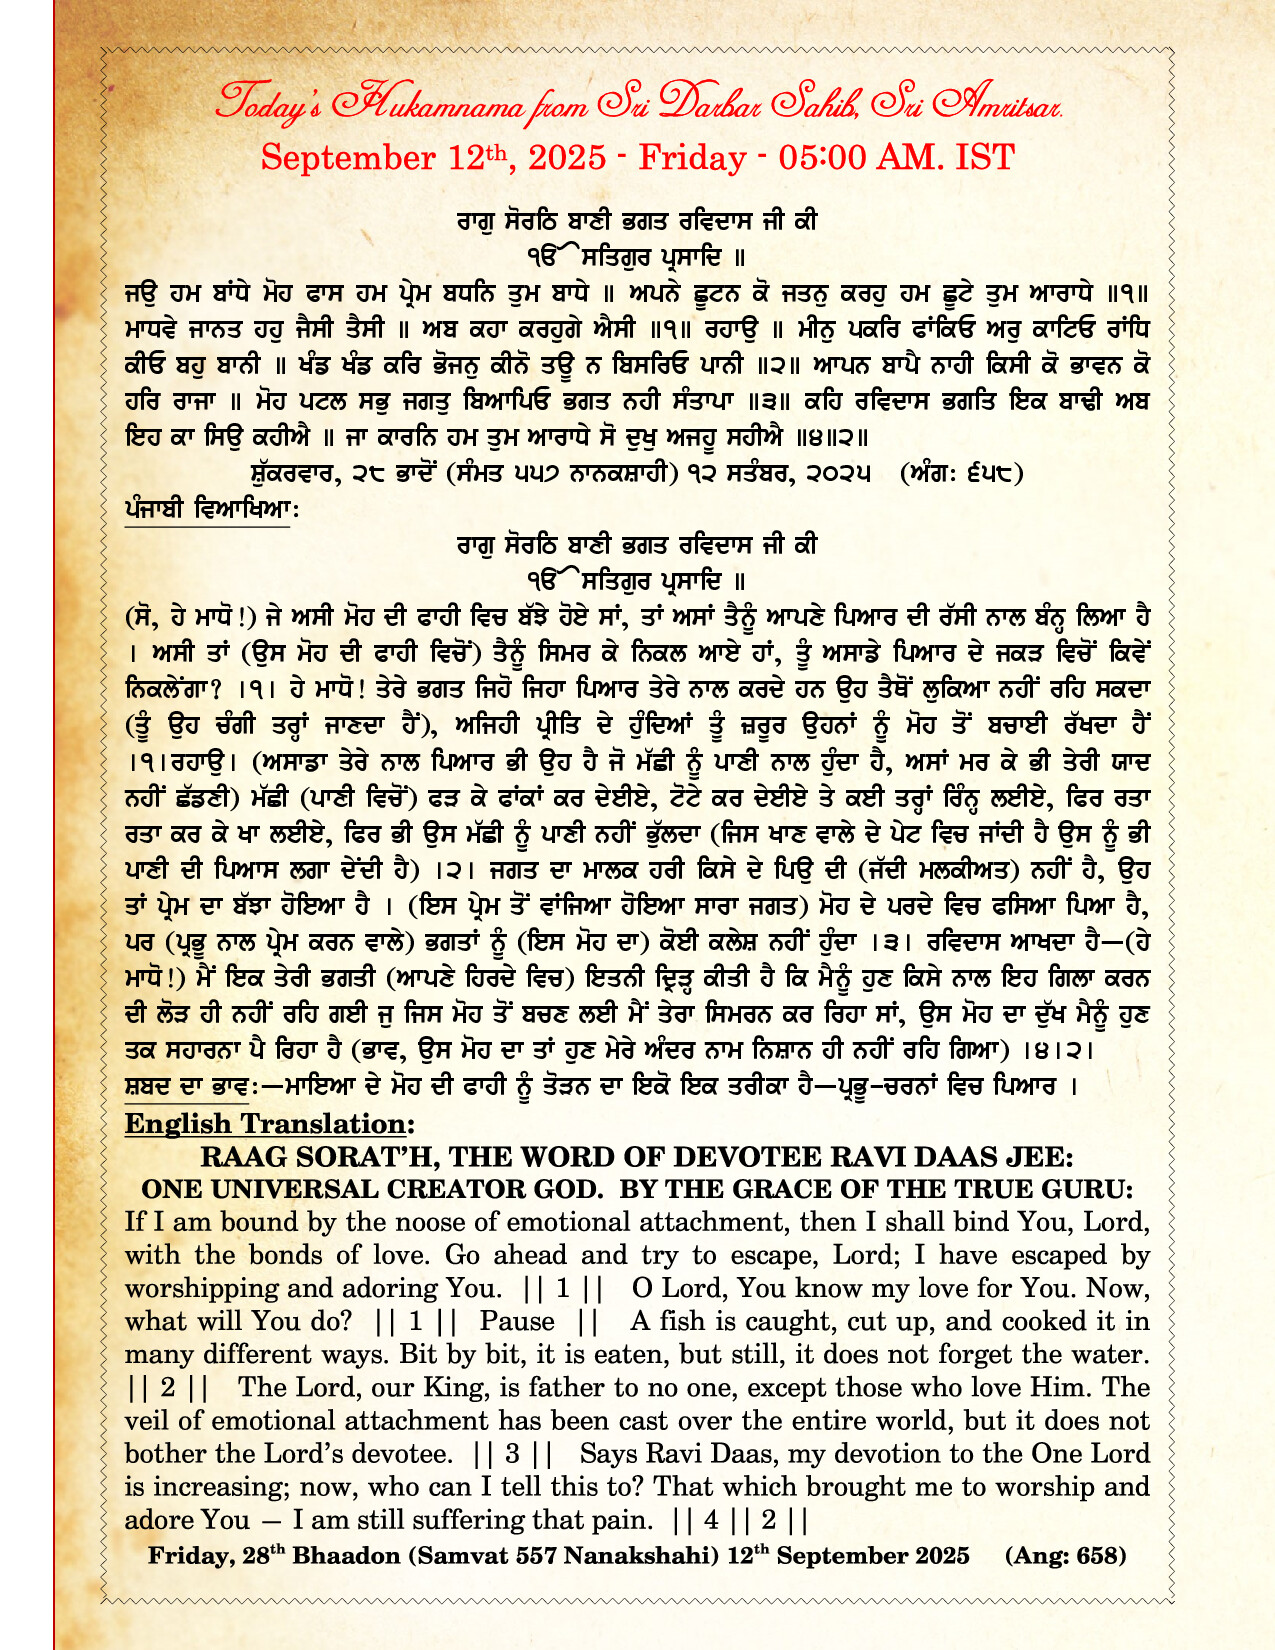 Today's Hukamnama from Sri Darbar Sahib, Sri Amritsar.
September 12th, 2025 - Friday - 05:00 AM. IST
ਰਾਗੁ ਸੋਰਠਿ ਬਾਣੀ ਭਗਤ ਰਵਿਦਾਸ ਜੀ ਕੀ
ੴ ਸਤਿਗੁਰ ਪ੍ਰਸਾਦਿ ॥
ਜਉ ਹਮ ਬਾਂਧੇ ਮੋਹ ਫਾਸ ਹਮ ਪ੍ਰੇਮ ਬਧਨਿ ਤੁਮ ਬਾਧੇ ॥ ਅਪਨੇ ਛੂਟਨ ਕੋ ਜਤਨੁ ਕਰਹੁ ਹਮ ਛੂਟੇ ਤੁਮ ਆਰਾਧੇ ॥੧॥
ਮਾਧਵੇ ਜਾਨਤ ਹਹੁ ਜੈਸੀ ਤੈਸੀ ॥ ਅਬ ਕਹਾ ਕਰਹੁਗੇ ਐਸੀ ॥੧॥ ਰਹਾਉ ॥ ਮੀਨੁ ਪਕਰਿ ਫਾਂਕਿਓ ਅਰੁ ਕਾਟਿਓ ਰਾਂਧਿ
ਕੀਓ ਬਹੁ ਬਾਨੀ ॥ ਖੰਡ ਖੰਡ ਕਰਿ ਭੋਜਨੁ ਕੀਨੋ ਤਊ ਨ ਬਿਸਰਿਓ ਪਾਨੀ ॥੨॥ ਆਪਨ ਬਾਪੈ ਨਾਹੀ ਕਿਸੀ ਕੋ ਭਾਵਨ ਕੋ
ਹਰਿ ਰਾਜਾ ॥ ਮੋਹ ਪਟਲ ਸਭੁ ਜਗਤੁ ਬਿਆਪਿਓ ਭਗਤ ਨਹੀ ਸੰਤਾਪਾ ॥੩॥ ਕਹਿ ਰਵਿਦਾਸ ਭਗਤਿ ਇਕ ਬਾਢੀ ਅਬ
ਇਹ ਕਾ ਸਿਉ ਕਹੀਐ ॥ ਜਾ ਕਾਰਨਿ ਹਮ ਤੁਮ ਆਰਾਧੇ ਸੋ ਦੁਖੁ ਅਜਹੂ ਸਹੀਐ ॥੪॥੨॥
ਸ਼ੁੱਕਰਵਾਰ, ੨੮ ਭਾਦੋਂ (ਸੰਮਤ ੫੫੭ ਨਾਨਕਸ਼ਾਹੀ) ੧੨ ਸਤੰਬਰ, ੨੦੨੫ (ਅੰਗ: ੬੫੮)
ਪੰਜਾਬੀ ਵਿਆਖਿਆ:
ਰਾਗੁ ਸੋਰਠਿ ਬਾਣੀ ਭਗਤ ਰਵਿਦਾਸ ਜੀ ਕੀ
ੴ ਸਤਿਗੁਰ ਪ੍ਰਸਾਦਿ ॥
(ਸੋ, ਹੇ ਮਾਧੋ!) ਜੇ ਅਸੀ ਮੋਹ ਦੀ ਫਾਹੀ ਵਿਚ ਬੱਝੇ ਹੋਏ ਸਾਂ, ਤਾਂ ਅਸਾਂ ਤੈਨੂੰ ਆਪਣੇ ਪਿਆਰ ਦੀ ਰੱਸੀ ਨਾਲ ਬੰਨ੍ਹ ਲਿਆ ਹੈ
। ਅਸੀ ਤਾਂ (ਉਸ ਮੋਹ ਦੀ ਫਾਹੀ ਵਿਚੋਂ) ਤੈਨੂੰ ਸਿਮਰ ਕੇ ਨਿਕਲ ਆਏ ਹਾਂ, ਤੂੰ ਅਸਾਡੇ ਪਿਆਰ ਦੇ ਜਕੜ ਵਿਚੋਂ ਕਿਵੇਂ
ਨਿਕਲੇਂਗਾ? ।੧। ਹੇ ਮਾਧੋ! ਤੇਰੇ ਭਗਤ ਜਿਹੋ ਜਿਹਾ ਪਿਆਰ ਤੇਰੇ ਨਾਲ ਕਰਦੇ ਹਨ ਉਹ ਤੈਥੋਂ ਲੁਕਿਆ ਨਹੀਂ ਰਹਿ ਸਕਦਾ
(ਤੂੰ ਉਹ ਚੰਗੀ ਤਰ੍ਹਾਂ ਜਾਣਦਾ ਹੈਂ), ਅਜਿਹੀ ਪ੍ਰੀਤਿ ਦੇ ਹੁੰਦਿਆਂ ਤੂੰ ਜ਼ਰੂਰ ਉਹਨਾਂ ਨੂੰ ਮੋਹ ਤੋਂ ਬਚਾਈ ਰੱਖਦਾ ਹੈਂ
।੧।ਰਹਾਉ। (ਅਸਾਡਾ ਤੇਰੇ ਨਾਲ ਪਿਆਰ ਭੀ ਉਹ ਹੈ ਜੋ ਮੱਛੀ ਨੂੰ ਪਾਣੀ ਨਾਲ ਹੁੰਦਾ ਹੈ, ਅਸਾਂ ਮਰ ਕੇ ਭੀ ਤੇਰੀ ਯਾਦ
ਨਹੀਂ ਛੱਡਣੀ) ਮੱਛੀ (ਪਾਣੀ ਵਿਚੋਂ) ਫੜ ਕੇ ਫਾਂਕਾਂ ਕਰ ਦੇਈਏ, ਟੋਟੇ ਕਰ ਦੇਈਏ ਤੇ ਕਈ ਤਰ੍ਹਾਂ ਰਿੰਨ੍ਹ ਲਈਏ, ਫਿਰ ਰਤਾ
ਰਤਾ ਕਰ ਕੇ ਖਾ ਲਈਏ, ਫਿਰ ਭੀ ਉਸ ਮੱਛੀ ਨੂੰ ਪਾਣੀ ਨਹੀਂ ਭੁੱਲਦਾ (ਜਿਸ ਖਾਣ ਵਾਲੇ ਦੇ ਪੇਟ ਵਿਚ ਜਾਂਦੀ ਹੈ ਉਸ ਨੂੰ ਭੀ
ਪਾਣੀ ਦੀ ਪਿਆਸ ਲਗਾ ਦੇਂਦੀ ਹੈ) ।੨। ਜਗਤ ਦਾ ਮਾਲਕ ਹਰੀ ਕਿਸੇ ਦੇ ਪਿਉ ਦੀ (ਜੱਦੀ ਮਲਕੀਅਤ) ਨਹੀਂ ਹੈ, ਉਹ
ਤਾਂ ਪ੍ਰੇਮ ਦਾ ਬੱਝਾ ਹੋਇਆ ਹੈ । (ਇਸ ਪ੍ਰੇਮ ਤੋਂ ਵਾਂਜਿਆ ਹੋਇਆ ਸਾਰਾ ਜਗਤ) ਮੋਹ ਦੇ ਪਰਦੇ ਵਿਚ ਫਸਿਆ ਪਿਆ ਹੈ,
ਪਰ (ਪ੍ਰਭੂ ਨਾਲ ਪ੍ਰੇਮ ਕਰਨ ਵਾਲੇ) ਭਗਤਾਂ ਨੂੰ (ਇਸ ਮੋਹ ਦਾ) ਕੋਈ ਕਲੇਸ਼ ਨਹੀਂ ਹੁੰਦਾ ।੩। ਰਵਿਦਾਸ ਆਖਦਾ ਹੈ—(ਹੇ
ਮਾਧੋ!) ਮੈਂ ਇਕ ਤੇਰੀ ਭਗਤੀ (ਆਪਣੇ ਹਿਰਦੇ ਵਿਚ) ਇਤਨੀ ਦ੍ਰਿੜ੍ਹ ਕੀਤੀ ਹੈ ਕਿ ਮੈਨੂੰ ਹੁਣ ਕਿਸੇ ਨਾਲ ਇਹ ਗਿਲਾ ਕਰਨ
ਦੀ ਲੋੜ ਹੀ ਨਹੀਂ ਰਹਿ ਗਈ ਜੁ ਜਿਸ ਮੋਹ ਤੋਂ ਬਚਣ ਲਈ ਮੈਂ ਤੇਰਾ ਸਿਮਰਨ ਕਰ ਰਿਹਾ ਸਾਂ, ਉਸ ਮੋਹ ਦਾ ਦੁੱਖ ਮੈਨੂੰ ਹੁਣ
ਤਕ ਸਹਾਰਨਾ ਪੈ ਰਿਹਾ ਹੈ (ਭਾਵ, ਉਸ ਮੋਹ ਦਾ ਤਾਂ ਹੁਣ ਮੇਰੇ ਅੰਦਰ ਨਾਮ ਨਿਸ਼ਾਨ ਹੀ ਨਹੀਂ ਰਹਿ ਗਿਆ) ।੪।੨।
ਸ਼ਬਦ ਦਾ ਭਾਵ:—ਮਾਇਆ ਦੇ ਮੋਹ ਦੀ ਫਾਹੀ ਨੂੰ ਤੋੜਨ ਦਾ ਇਕੋ ਇਕ ਤਰੀਕਾ ਹੈ—ਪ੍ਰਭੂ-ਚਰਨਾਂ ਵਿਚ ਪਿਆਰ ।
English Translation:
RAAG SORAT'H, THE WORD OF DEVOTEE RAVI DAAS JEE:
ONE UNIVERSAL CREATOR GOD. BY THE GRACE OF THE TRUE GURU:
If I am bound by the noose of emotional attachment, then I shall bind You, Lord,
with the bonds of love. Go ahead and try to escape, Lord; I have escaped by
worshipping and adoring You. || 1 || O Lord, You know my love for You. Now,
what will You do? || 1 || Pause || A fish is caught, cut up, and cooked it in
many different ways. Bit by bit, it is eaten, but still, it does not forget the water.
|| 2 || The Lord, our King, is father to no one, except those who love Him. The
veil of emotional attachment has been cast over the entire world, but it does not
bother the Lord's devotee. || 3 || Says Ravi Daas, my devotion to the One Lord
is increasing; now, who can I tell this to? That which brought me to worship and
adore You – I am still suffering that pain. || 4 || 2 ||
Friday, 28th Bhaadon (Samvat 557 Nanakshahi) 12th September 2025 (Ang: 658)